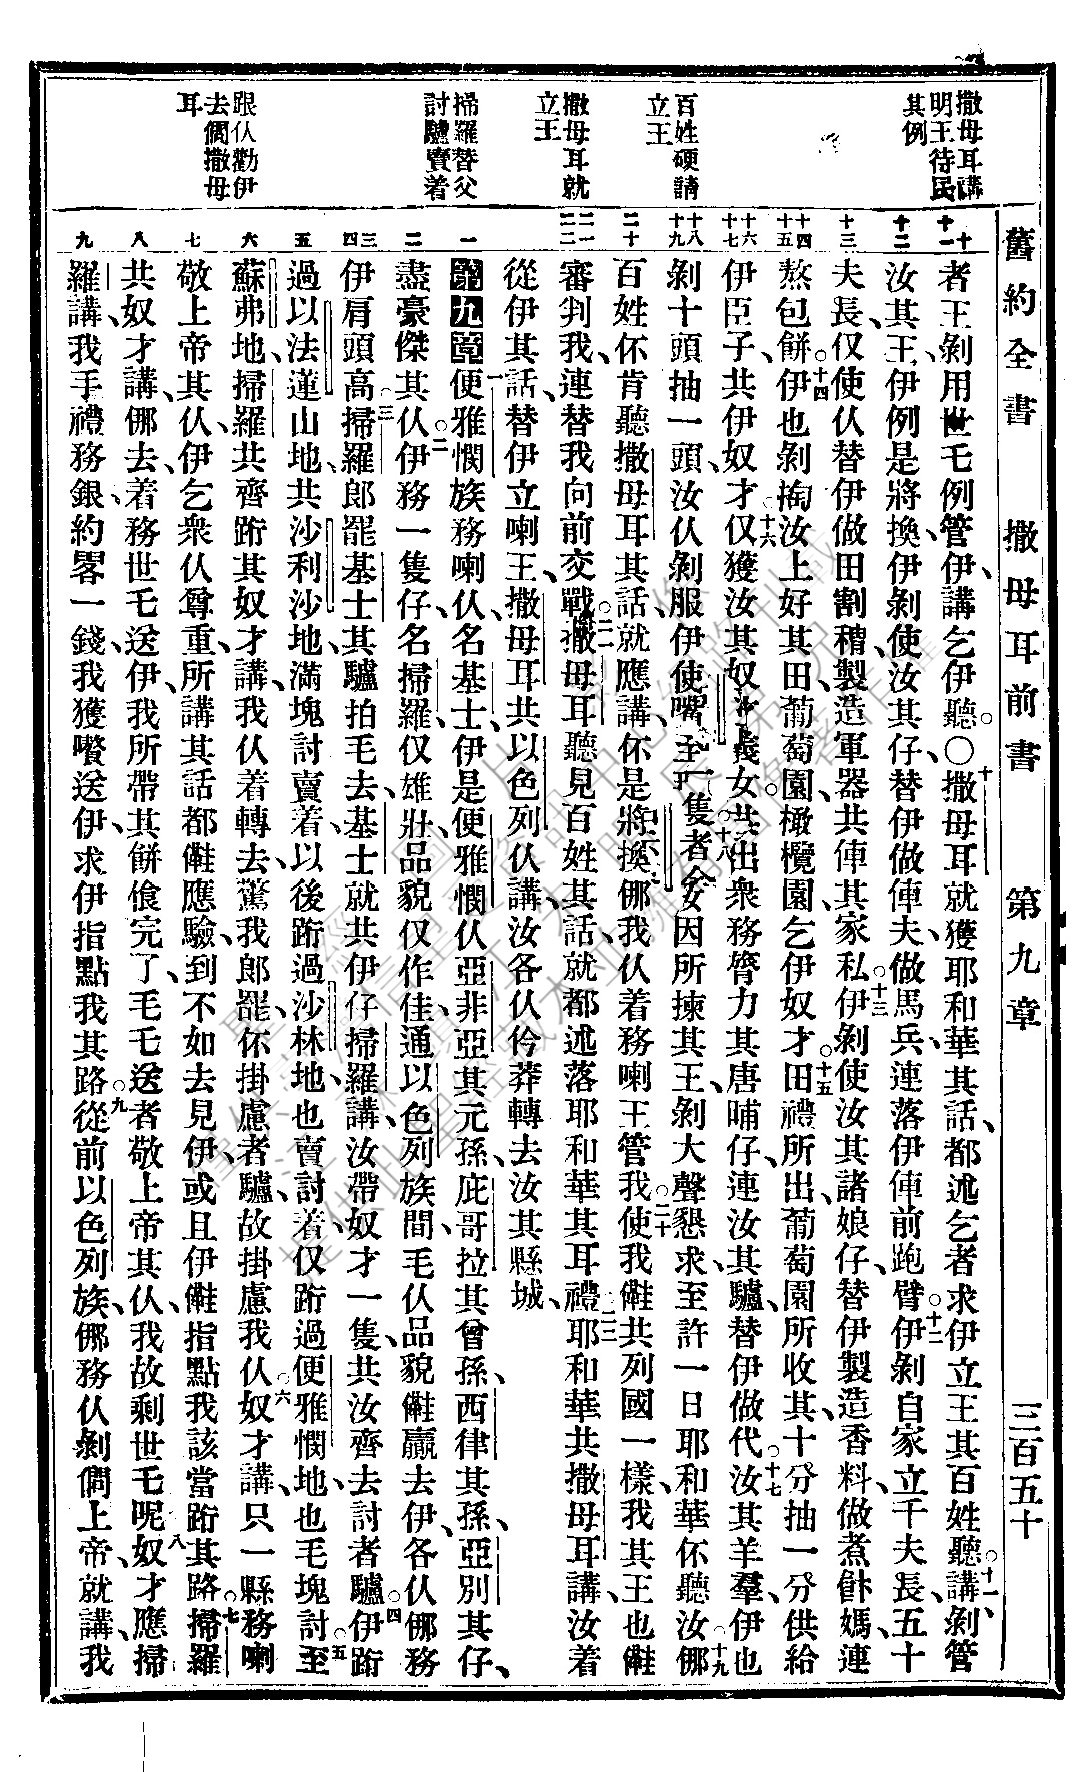 舊約全書 撒母耳前書 第九章 三百五十
撒母耳講
明王待民
其例
百姓硬請
立王
撒母耳就
立王
掃羅替父
討驢賣着
跟仆勸伊
去儞撒母
耳
十 十一 十二 十三 十四 十五 十六 十七 十八 十九 二十 二一 二二 一 二 三 四 五 六 七 八 九
者王剝用世乇例管伊、講乞伊聽。○十撒母耳就獲耶和華其話、都述乞者求伊立王其百姓聽。十一講、剝管
汝其王、伊例是將換、伊剝使汝其仔、替伊做俥夫、做馬兵、連落伊俥前跑。十二臂伊剝自家立千夫長、五十
夫長、仅使仆替伊做田割穧、製造軍器、共俥其家私。十三伊剝使汝其諸娘仔、替伊製造香料、做煮飠媽、連
熬包餅。十四伊也剝掏汝上好其田、葡萄園、橄欖園、乞伊奴才。十五田禮所出、葡萄園所收其、十分抽一分、供給
伊臣子、共伊奴才。十六仅獲汝其奴才義女、共出眾務膂力其唐晡仔、連汝其驢、替伊做代。十七汝其羊羣、伊也
剝十頭抽一頭、汝仆剝服伊使嘴。十八至一隻者多、汝因所揀其王、剝大聲懇求、至許一日、耶和華伓聽汝。十九
百姓伓肯聽撒母耳其話、就應講、伓是將換、我仆着務喇王管我。二十使我𣍐共列國一樣、我其王也
審判我、連替我向前交戰。二一撒母耳聽見百姓其話、就都述落耶和華其耳禮。二二耶和華共撒母耳講、汝着
從伊其話、替伊立喇王、撒母耳共以色列仆講、汝各仆伶莽轉去汝其縣城、
第九章 一便雅憫族務喇仆、名基士、伊是便雅憫仆、亞非亞其元孫、庇哥拉其曾孫、西律其孫、亞別其仔、
盡豪傑其仆。二伊務一隻仔、名掃羅、仅雄壯、品貌仅作佳、通以色列族間、毛仆品貌贏去伊、各仆務
伊肩頭高。三掃羅郎罷基士其驢拍毛去、基士就共伊仔掃羅講、汝帶奴才一隻、共汝齊去討者驢。四伊跔
過以法蓮山地、共沙利沙地、滿塊討賣着、以後跔過沙林地、也賣討着、仅跔過便雅憫地、也毛塊討。五至
蘇弗地、掃羅共齊跔其奴才講、我仆着轉去、驚我郎罷伓掛慮者驢、故掛慮我仆。六奴才講、只一縣務喇
敬上帝其仆、伊乞眾仆尊重、所講其話都應驗、到不如去見伊、或且伊指點我該當跔其路。七掃羅
共奴才講、去着務世乇送伊、我所帶其餅飡完了、毛乇送者敬上帝其仆、我故剩世乇呢。八奴才應掃
羅講、我手禮務銀約畧一錢、我獲囋送伊、求伊指點我其路。九從前以色列族、務仆剝儞上帝、就講、我